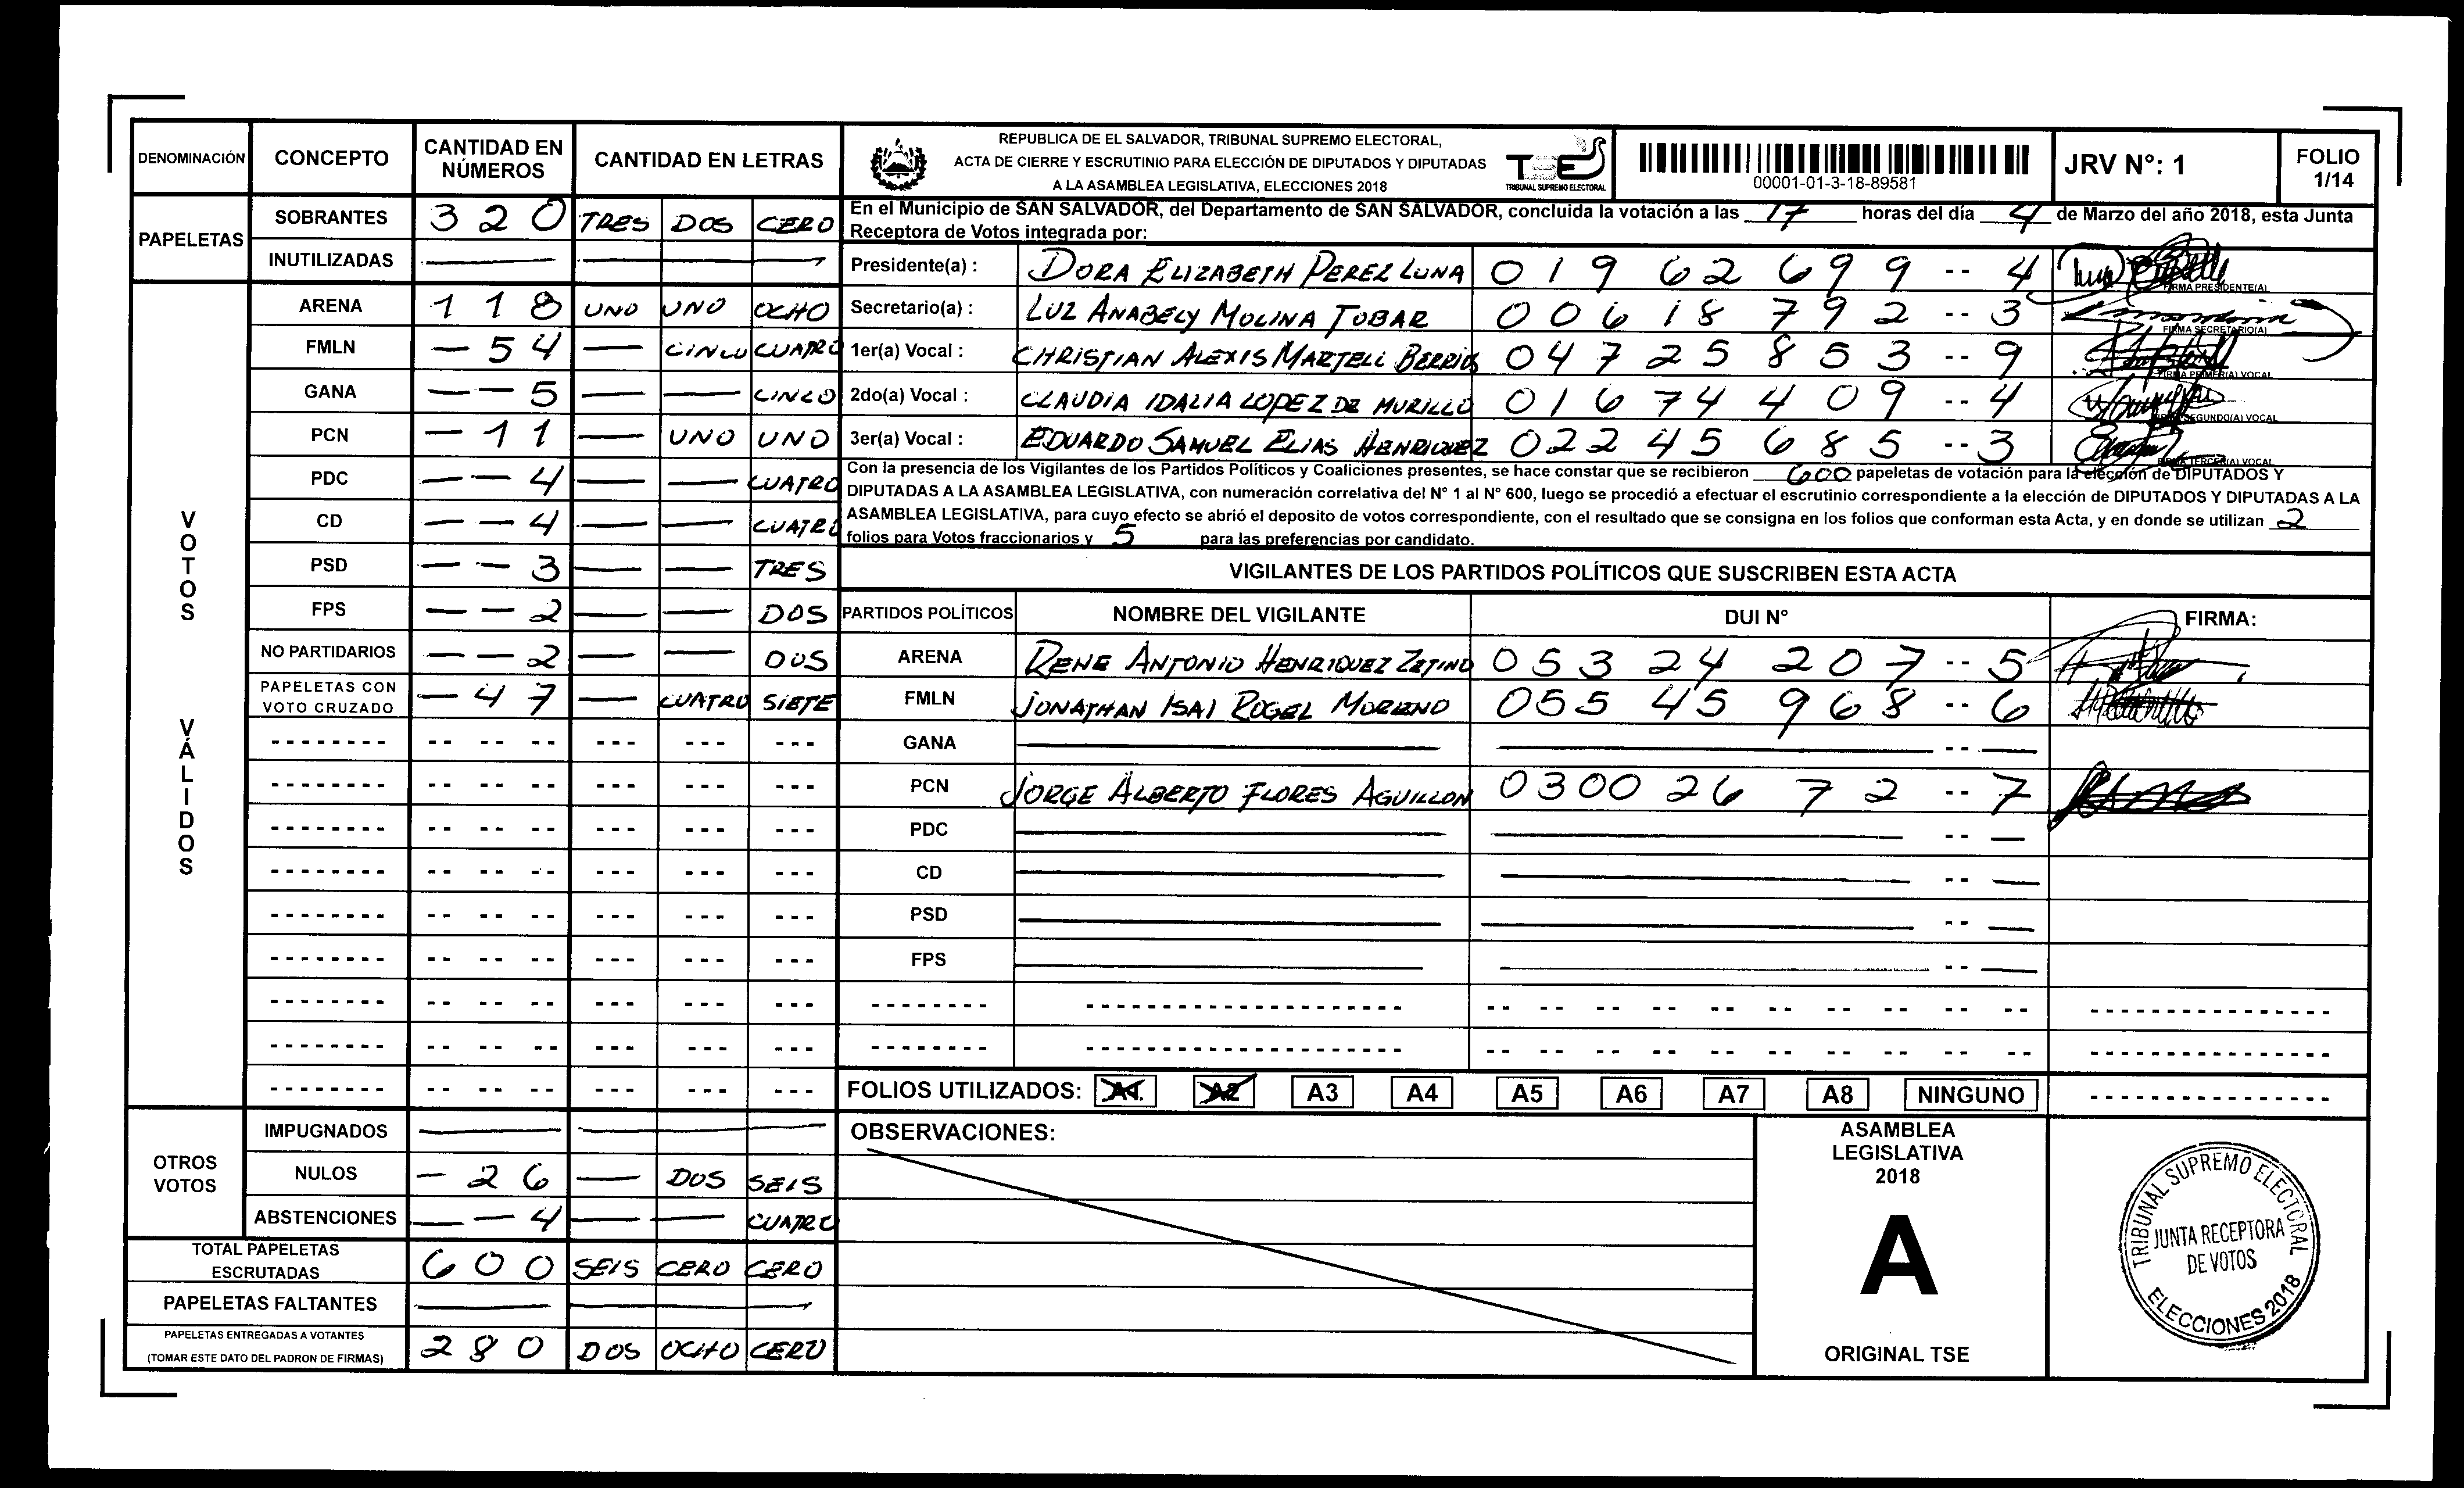 DENOMINACIÓN CONCEPTO CANTIDAD EN NÚMEROS CANTIDAD EN LETRAS
PAPELETAS
SOBRANTES 3 2 0 TRES DOS CERO
INUTILIZADAS — —
VOTOS VÁLIDOS
ARENA 1 1 8 UNO UNO OCHO
FMLN — 5 4 — CINCO CUATRO
GANA — — 5 — — CINCO
PCN — 1 1 — UNO UNO
PDC — — 4 — — CUATRO
CD — — 4 — — CUATRO
PSD — — 3 — — TRES
FPS — — 2 — — DOS
NO PARTIDARIOS — — 2 — — DOS
PAPELETAS CON VOTO CRUZADO — 4 7 — CUATRO SIETE
OTROS VOTOS
IMPUGNADOS — —
NULOS — 2 6 — DOS SEIS
ABSTENCIONES — — 4 — — CUATRO
TOTAL PAPELETAS ESCRUTADAS 6 0 0 SEIS CERO CERO
PAPELETAS FALTANTES — —
PAPELETAS ENTREGADAS A VOTANTES
(TOMAR ESTE DATO DEL PADRON DE FIRMAS) 2 8 0 DOS OCHO CERO
REPUBLICA DE EL SALVADOR, TRIBUNAL SUPREMO ELECTORAL,
ACTA DE CIERRE Y ESCRUTINIO PARA ELECCIÓN DE DIPUTADOS Y DIPUTADAS
A LA ASAMBLEA LEGISLATIVA, ELECCIONES 2018
TSE
TRIBUNAL SUPREMO ELECTORAL
00001-01-3-18-89581
JRV N°: 1
FOLIO
1/14
En el Municipio de SAN SALVADOR, del Departamento de SAN SALVADOR, concluida la votación a las 17 horas del día 4 de Marzo del año 2018, esta Junta
Receptora de Votos integrada por:
Presidente(a) : DORA ELIZABETH PEREZ LUNA 0 1 9 6 2 6 9 9 -- 4 FIRMA PRESIDENTE(A)
Secretario(a) : LUZ ANABELY MOLINA TOBAR 0 0 6 1 8 7 9 2 -- 3 FIRMA SECRETARIO(A)
1er(a) Vocal : CHRISTIAN ALEXIS MARTELL BERRIOS 0 4 7 2 5 8 5 3 -- 9 FIRMA PRIMER(A) VOCAL
2do(a) Vocal : CLAUDIA IDALIA LOPEZ DE MURILLO 0 1 6 7 4 4 0 9 -- 4 FIRMA SEGUNDO(A) VOCAL
3er(a) Vocal : EDUARDO SAMUEL ELIAS HENRIQUEZ 0 2 2 4 5 6 8 5 -- 3 FIRMA TERCER(A) VOCAL
Con la presencia de los Vigilantes de los Partidos Políticos y Coaliciones presentes, se hace constar que se recibieron 600 papeletas de votación para la elección de DIPUTADOS Y
DIPUTADAS A LA ASAMBLEA LEGISLATIVA, con numeración correlativa del N° 1 al N° 600, luego se procedió a efectuar el escrutinio correspondiente a la elección de DIPUTADOS Y DIPUTADAS A LA
ASAMBLEA LEGISLATIVA, para cuyo efecto se abrió el deposito de votos correspondiente, con el resultado que se consigna en los folios que conforman esta Acta, y en donde se utilizan 2
folios para Votos fraccionarios y 5 para las preferencias por candidato.
VIGILANTES DE LOS PARTIDOS POLÍTICOS QUE SUSCRIBEN ESTA ACTA
PARTIDOS POLÍTICOS NOMBRE DEL VIGILANTE DUI N° FIRMA:
ARENA RENE ANTONIO HENRIQUEZ ZETINO 0 5 3 2 4 2 0 7 -- 5
FMLN JONATHAN ISAI ROGEL MORENO 0 5 5 4 5 9 6 8 -- 6
GANA — — -- —
PCN JORGE ALBERTO FLORES AGUILLON 0 3 0 0 2 6 7 2 -- 7
PDC — — -- —
CD — — -- —
PSD — — -- —
FPS — — -- —
FOLIOS UTILIZADOS: A1. A2 A3 A4 A5 A6 A7 A8 NINGUNO
OBSERVACIONES:
ASAMBLEA
LEGISLATIVA
2018
A
ORIGINAL TSE
TRIBUNAL SUPREMO ELECTORAL
JUNTA RECEPTORA
DE VOTOS
ELECCIONES 2018